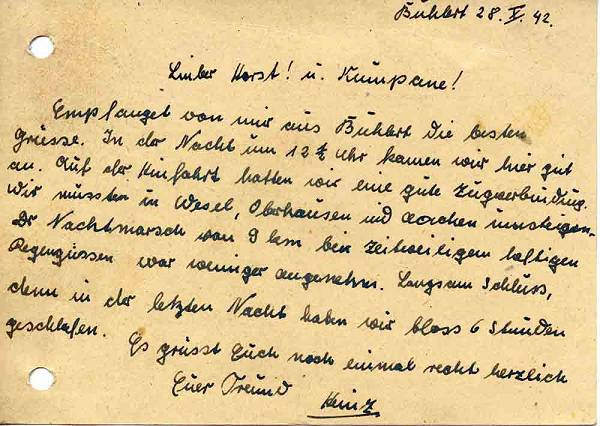 Bühlert 28. V. 42.
Lieber Horst! u. Kumpane!
Empfanget von mir aus Bühlert die besten
Grüsse. In der Nacht um 12 Uhr kamen wir hier gut
an. Auf der Hinfahrt hatten wir eine gute Zugverbindung.
Wir mussten in Wesel, Oberhausen und Aachen umsteigen.
Der Nachtmarsch von 9 km bei zeitweiligem heftigen
Regengüssen war weniger angenehm. Langsam Schluss,
denn in der letzten Nacht haben wir bloss 6 Stunden
geschlafen.
Es grüsst Euch noch einmal recht herzlich
Euer Freund
Heinz